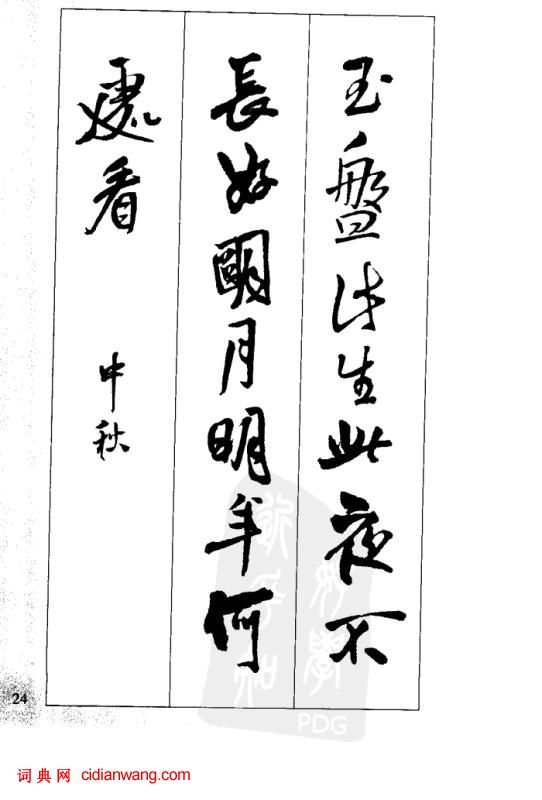 玉盤此生此夜不
長好明月明年何
處看
中秋
24
PDG
词典网 cidianwang.com